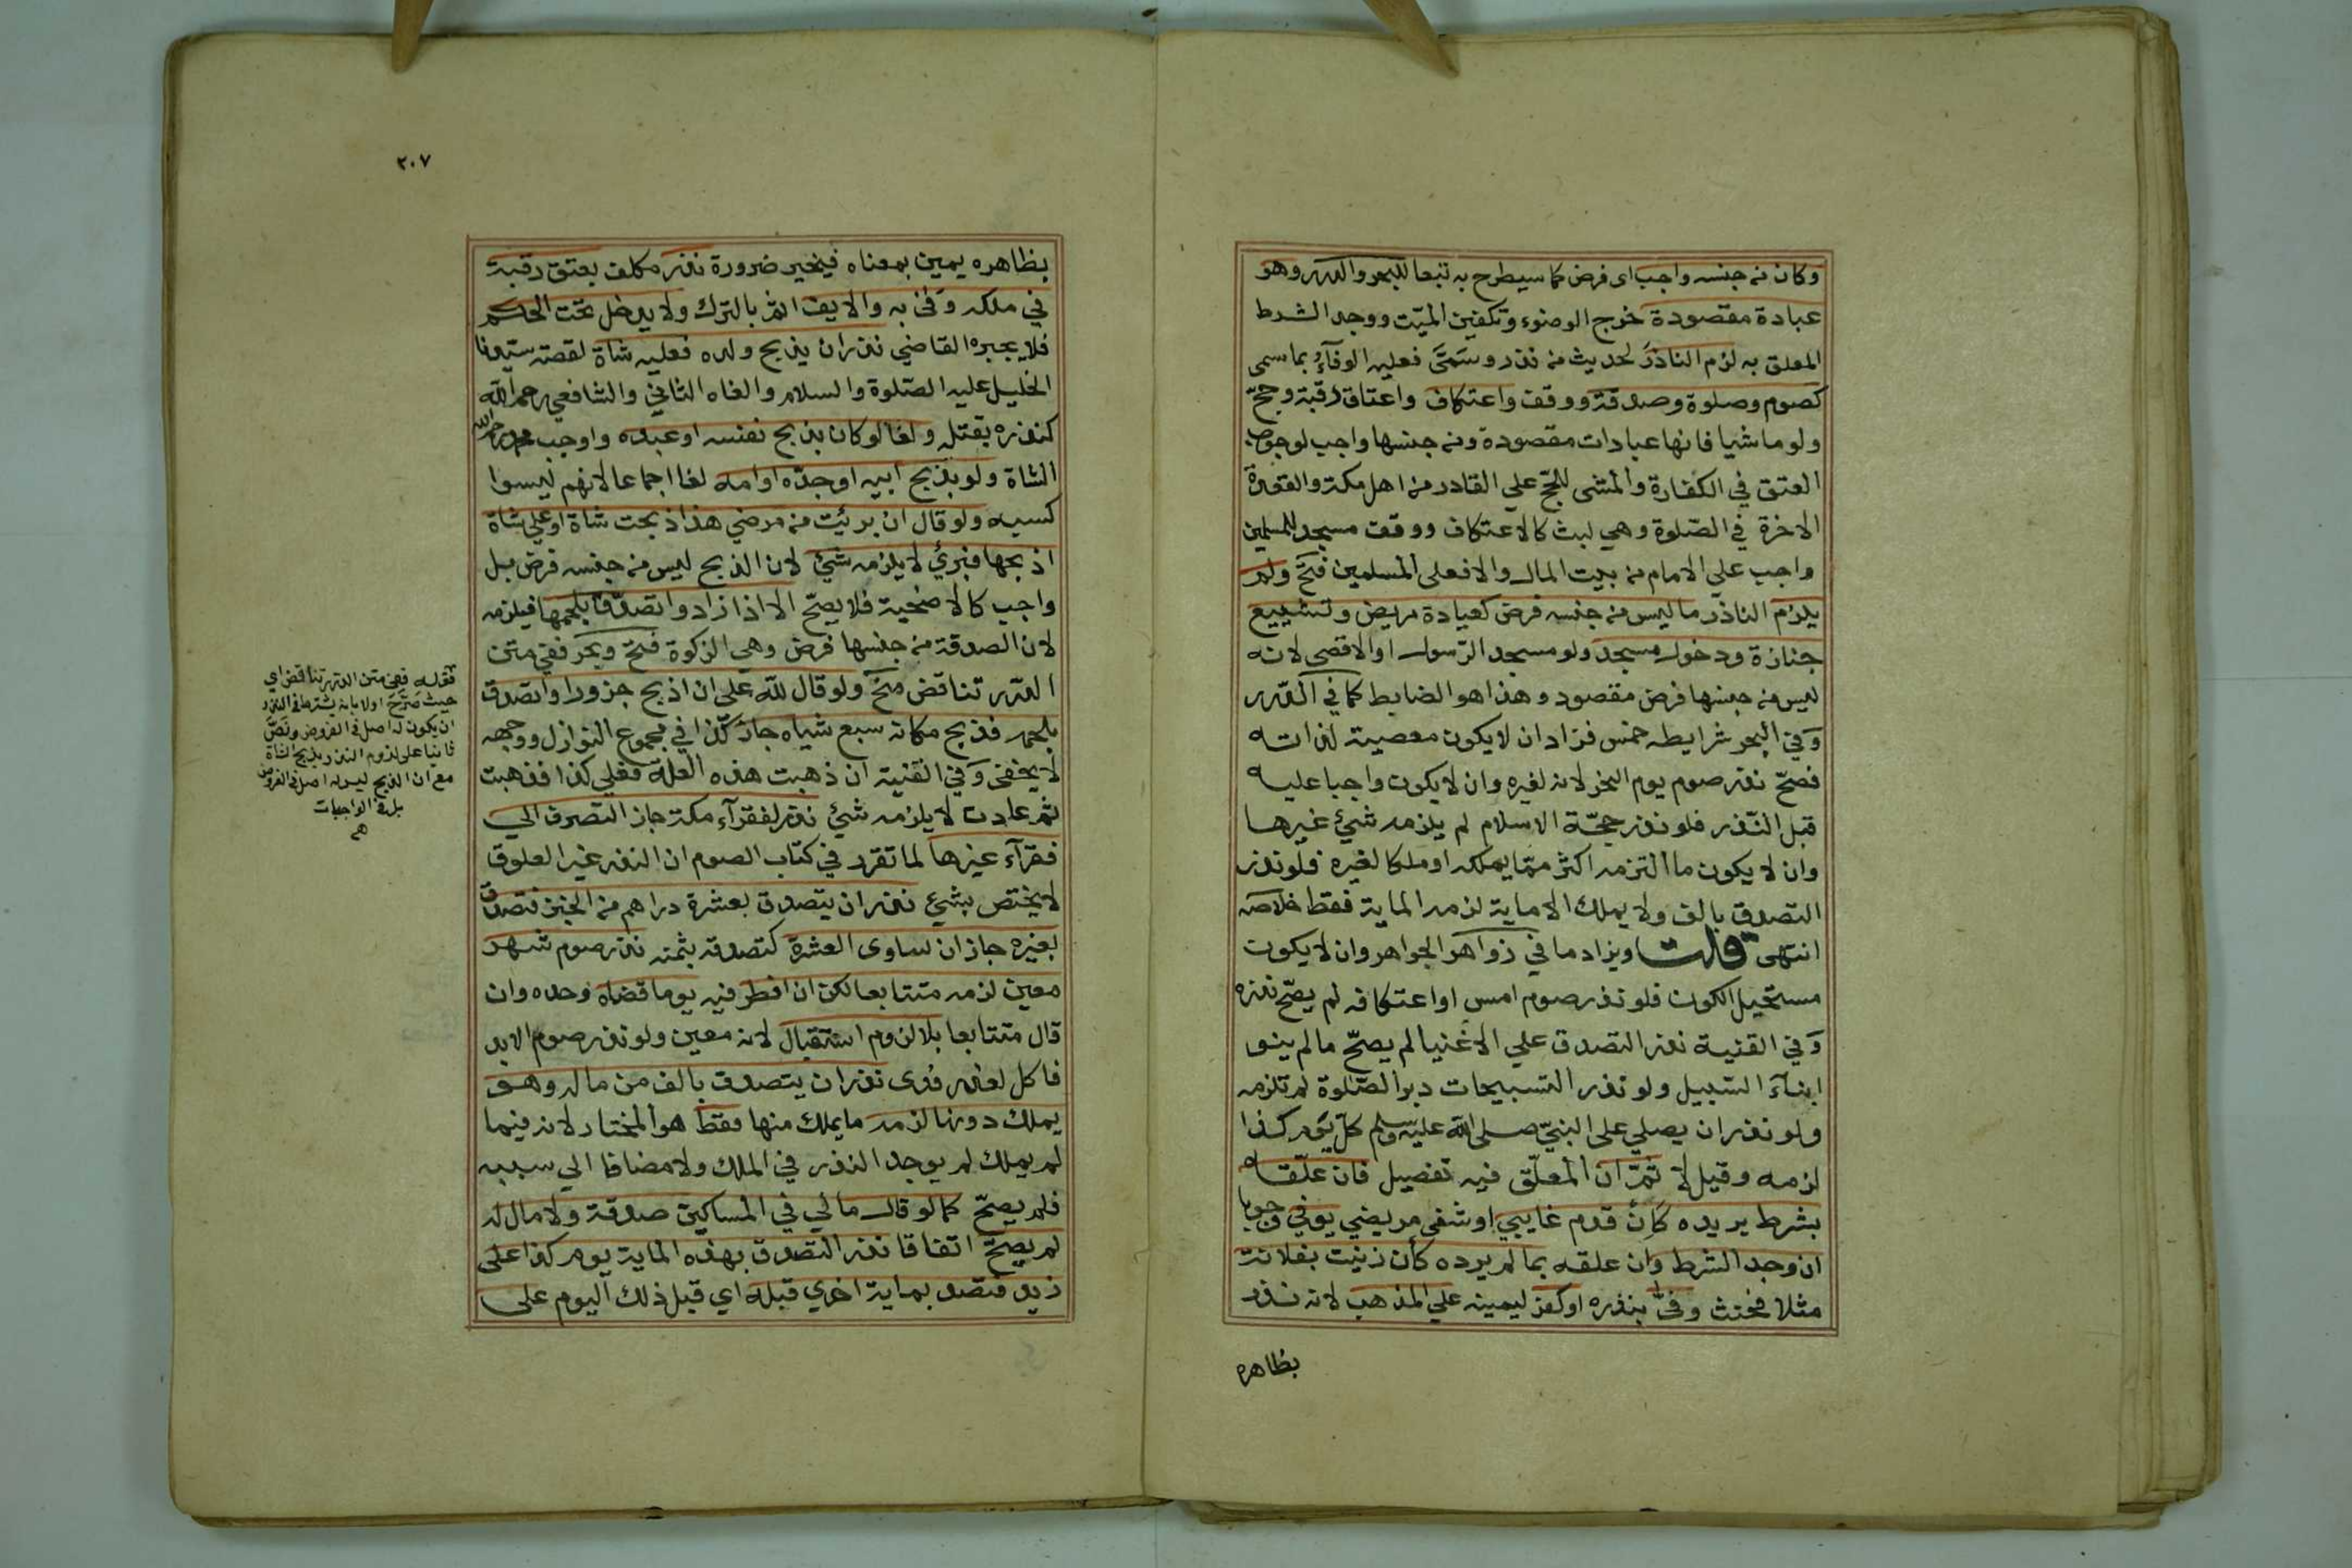 وكان من جنسه واجب اى فرض كما سيطرح به تبعا للبحر والدرر وهو
عبادة مقصودة خرج الوضوء وتكفين الميّت ووجد الشرط
المعلق به لزم الناذر لحديث من نذر وسمّى فعليه الوفآء بما سمى
كصوم وصلوة وصدقة ووقف واعتكاف واعتاق رقبة وحجّ
ولو ماشيا فانها عبادات مقصودة ومن جنسها واجب لوجوب
العتق في الكفارة والمشى للحجّ علي القادر من اهل مكة والقعدة
الاخرة في الصّلوة وهي لبث كالاعتكاف ووقف مسجد للمسلمين
واجب علي الامام من بيت المال والا فعلى المسلمين فتح ولم
يلزم الناذر ما ليس من جنسه فرض كعيادة مريض وتشييع
جنازة ودخول مسجد ولو مسجد الرّسول او الاقصى لانه
ليس من جنسها فرض مقصود وهذا هو الضابط كما في الدّرر
وفي البحر شرايطه خمس فزاد ان لا يكون معصية لذاته
فصحّ نذر صوم يوم النحر لانه لغيره وان لا يكون واجبا عليه
قبل النّذر فلو نذر حجّة الاسلام لم يلزمه شيئ غيرها
وان لا يكون ما التزمه اكثر ممّا يملكه او ملكا لغيره فلو نذر
التصدق بالف ولا يملك الا ماية لزمه الماية فقط خلاصه
انتهى قلت ويزاد ما في زواهر الجواهر وان لا يكون
مستحيل الكون فلو نذر صوم امس او اعتكافه لم يصّح نذره
وفي القنية نذر التصدق علي الاغنيا لم يصحّ ما لم ينو
ابنآء السّبيل ولو نذر التسبيحات دبر الصّلوة لم تلزمه
ولو نذر ان يصلي على النبيّ صلى الله عليه وسلم كلّ يوم كذا
لزمه وقيل لا ثمّ ان المعلّق فيه تفصيل فان علّقه
بشرط يريده كان قدم غايبي او شفى مريضي يوفي وجوبا
ان وجد الشرط وان علقه بما لم يرده كأن زنيت بفلانة
مثلا فحنث وفىّ بنذره او كفر ليمينه علي المذهب لانه نذر
بظاهره
٢٠٧
بظاهره يمين بمعناه فيخير ضرورة نذر مكلف بعتق رقبة
في ملكه وفى به والا يف اثم بالترك ولا يدخل تحت الحكم
فلا يجبره القاضي نذر ان يذبح ولده فعليه شاة لقصة سيدنا
الخليل عليه الصّلوة والسلام والغاه الثاني والشافعي رحمه الله
كنذره بقتله ولغا لو كان بذبح نفسه او عبده واوجب محمد رحمه الله
الشاة ولو بذبح ابيه او جدّه او امه لغا اجماعا لانهم ليسوا
كسبه ولو قال ان برئت من مرضي هذا ذبحت شاة او علي شاة
اذبحها فبرئ لا يلزمه شيئ لان الذبح ليس من جنسه فرض بل
واجب كالاضحية فلا يصحّ الا اذا زاد واتصدّق بلحمها فيلزمه
لان الصدقة من جنسها فرض وهي الزكوة فتح وبحر ففي متن
الدّرر تناقض منح ولو قال للّه على ان اذبح جزورا واتصدق
بلحمه فذبح مكانه سبع شياه جاز كذا في مجموع النوازل ووجهه
لا يخفى وفي القنية ان ذهبت هذه العلة فعلي كذا فذهبت
ثم عادت لا يلزمه شيئ نذر لفقرآء مكة جاز التصرف الي
فقرآء غيرها لما تقرر في كتاب الصوم ان النذر غير المعلوق
لا يختص بشيء نذر ان يتصدق بعشرة دراهم من الخبز فتصدق
بغيره جاز ان ساوى العشرة كتصدقه بثمنه نذر صوم شهر
معين لزمه متتابعا لكن ان افطر فيه يوما قضاه وحده وان
قال متتابعا بلا لزوم استقبال لانه معين ولو نذر صوم الابد
فاكل لعذر فدى نذر ان يتصدق بالف من ماله وهو
يملك دونها لزمه ما يملك منها فقط هو المختار لانه فيما
لم يملك لم يوجد النذر في الملك ولا مضافا الي سببه
فلم يصحّ كما لو قال مالي في المساكين صدقة ولا مال له
لم يصحّ اتفاقا نذر التصدق بهذه الماية يوم كذا على
زيد فتصدق بماية اخري قبله اي قبل ذلك اليوم على
قوله ففي متن الدرر تناقض اي
حيث صرّح اولا بانه يشترط في النذر
ان يكون له اصل في الفروض ونصّ
ثانيا على لزوم النذر بذبح الشاة
مع ان الذبح ليس له اصل في الفروض
بل في الواجبات